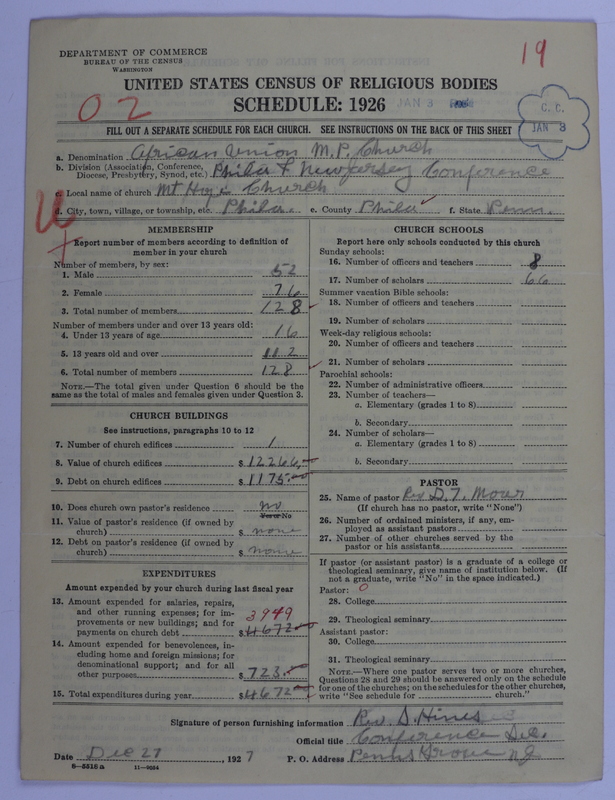 DEPARTMENT OF COMMERCE
BUREAU OF THE CENSUS
WASHINGTON
19
UNITED STATES CENSUS OF RELIGIOUS BODIES
SCHEDULE: 1926
JAN 3
02
C. C.
JAN 3
FILL OUT A SEPARATE SCHEDULE FOR EACH CHURCH. SEE INSTRUCTIONS ON THE BACK OF THIS SHEET
a. Denomination African Union M.P. Church
b. Division (Association, Conference, Diocese, Presbytery, Synod, etc.) Phila & New Jersey Conference
c. Local name of church Mt Hope Church
d. City, town, village, or township, etc. Phila. e. County Phila f. State Penn.
MEMBERSHIP
Report number of members according to definition of
member in your church
Number of members, by sex:
1. Male 52
2. Female 76
3. Total number of members 128
Number of members under and over 13 years old:
4. Under 13 years of age 16
5. 13 years old and over 112
6. Total number of members 128
NOTE.—The total given under Question 6 should be the
same as the total of males and females given under Question 3.
CHURCH BUILDINGS
See instructions, paragraphs 10 to 12
7. Number of church edifices 1
8. Value of church edifices $ 12266.00
9. Debt on church edifices $ 1175.00
10. Does church own pastor's residence? no
Yes or No
11. Value of pastor's residence (if owned by
church) $ none
12. Debt on pastor's residence (if owned by
church) $ none
EXPENDITURES
Amount expended by your church during last fiscal year
13. Amount expended for salaries, repairs,
and other running expenses; for im-
provements or new buildings; and for 3949
payments on church debt $ 4672
14. Amount expended for benevolences, in-
cluding home and foreign missions; for
denominational support; and for all
other purposes $ 723.
15. Total expenditures during year $ 4672
CHURCH SCHOOLS
Report here only schools conducted by this church
Sunday schools:
16. Number of officers and teachers 8
17. Number of scholars 66
Summer vacation Bible schools:
18. Number of officers and teachers
19. Number of scholars
Week-day religious schools:
20. Number of officers and teachers
21. Number of scholars
Parochial schools:
22. Number of administrative officers
23. Number of teachers—
a. Elementary (grades 1 to 8)
b. Secondary
24. Number of scholars—
a. Elementary (grades 1 to 8)
b. Secondary
PASTOR
25. Name of pastor Rev D. T.
(If church has no pastor, write "None")
26. Number of ordained ministers, if any, em-
ployed as assistant pastors
27. Number of other churches served by the
pastor or his assistants
If pastor (or assistant pastor) is a graduate of a college or
theological seminary, give name of institution below. (If
not a graduate, write "No" in the space indicated.)
Pastor: 0
28. College
29. Theological seminary
Assistant pastor:
30. College
31. Theological seminary
NOTE.—Where one pastor serves two or more churches,
Questions 28 and 29 should be answered only on the schedule
for one of the churches; on the schedules for the other churches,
write "See schedule for church."
Signature of person furnishing information Rev. S. Hines
Official title Conference Sec.
Date Dec 27, 1927 P. O. Address Penns Grove NJ
8—5518 a 11—9024